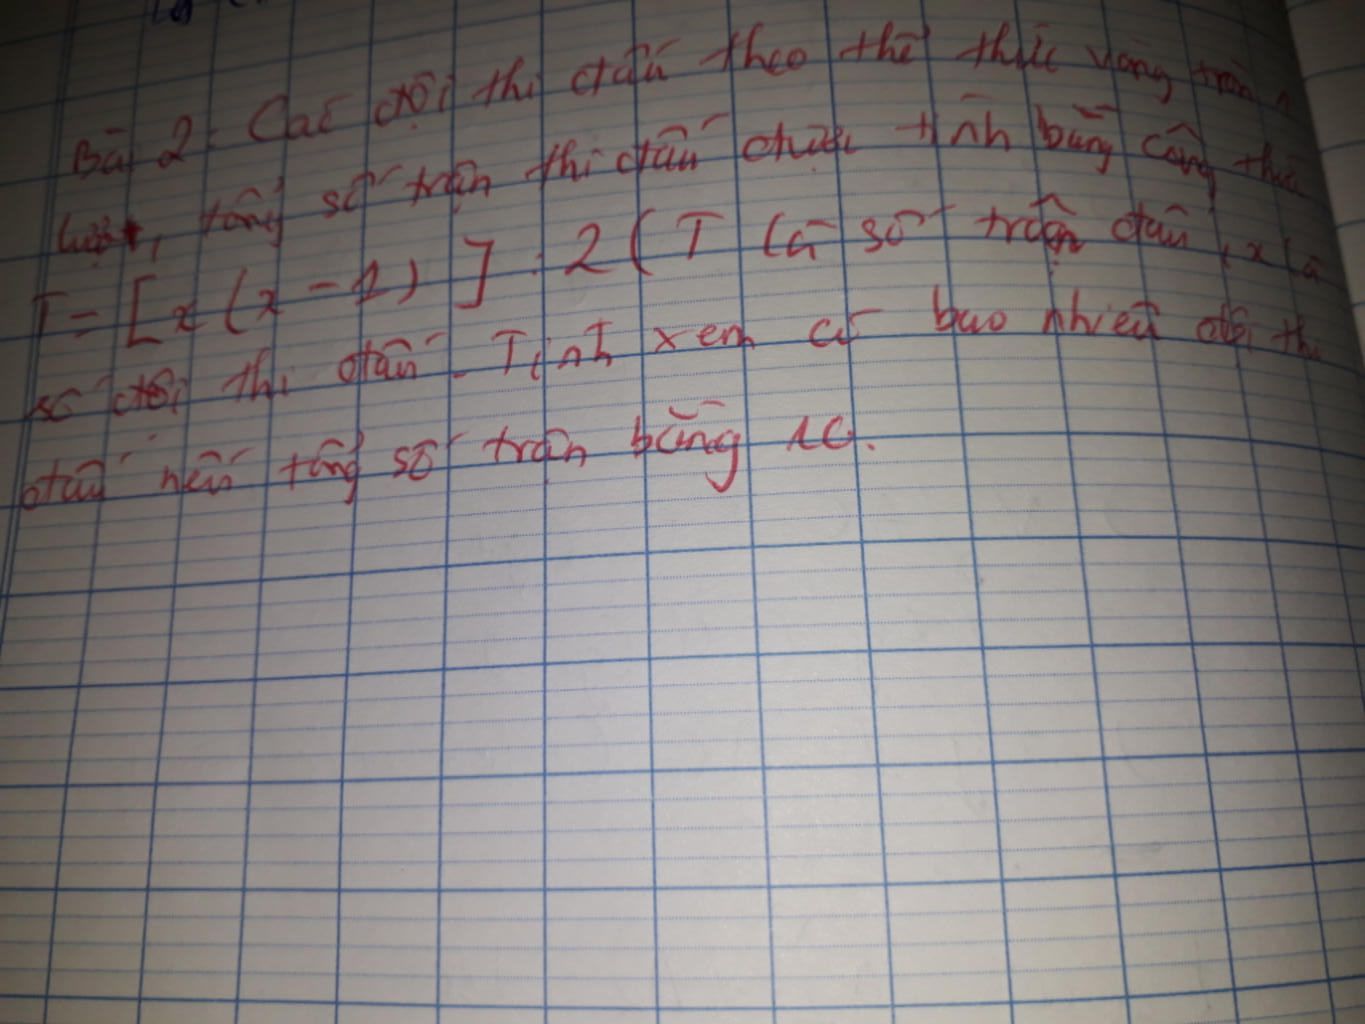 Bài 2: Các đội thi đấu theo thể thức vòng tròn 1
lượt, tổng số trận thi đấu được tính bằng công thức
T = [x(x - 1)] : 2 (T là số trận đấu, x là
số đội thi đấu. Tính xem có bao nhiêu đội thi
đấu nếu tổng số trận bằng 10.